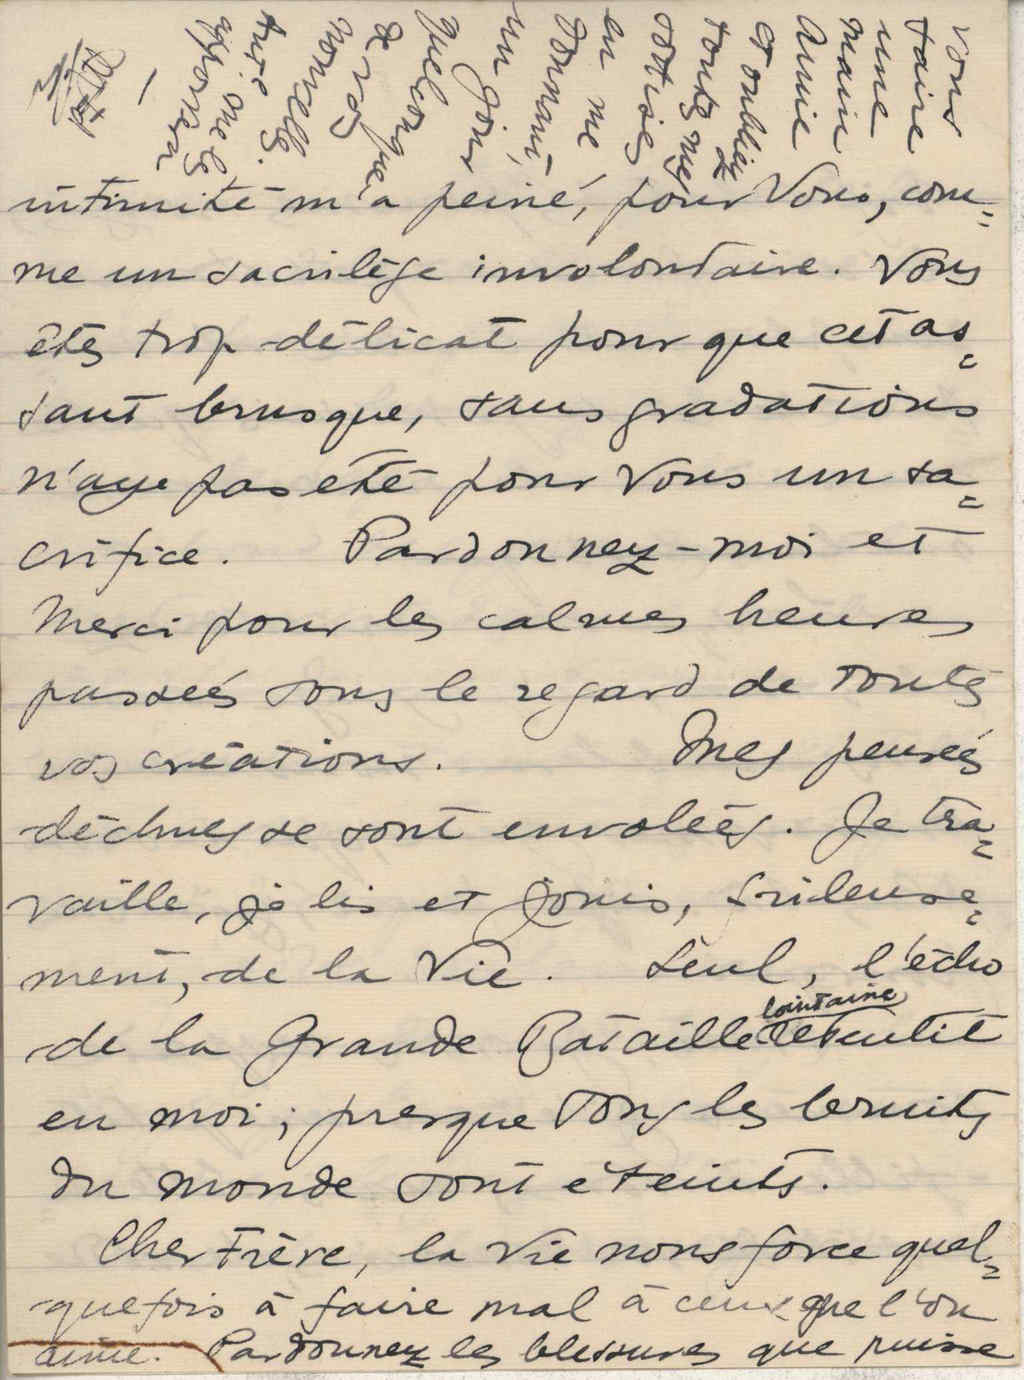 intimité m'a peiné, pour Vous, com=
me un sacrilège involontaire. Vous
êtes trop délicat pour que cet as=
saut brusque, sans gradations
n'aye pas été pour Vous un sa=
crifice. Pardonnez-moi et
Merci pour les calmes heures
passées sous le regard de toutes
vos créations. Mes pensées
déchues se sont envolées. Je tra=
vaille, je lis et jouis, frileuse=
ment, de la Vie. Seul, l'écho
lointaine
de la Grande Bataille retentit
en moi ; presque tous les bruits
du monde sont éteints.
Cher Frère, la vie nous force quel=
quefois à faire mal à ceux que l'on
aime. Pardonnez les blessures que puisse
vous
faire
une
main
Amie
et oubliez
toutes mes
sottises
en me
donnant,
un jour
quelconque,
de vos
nouvelles.